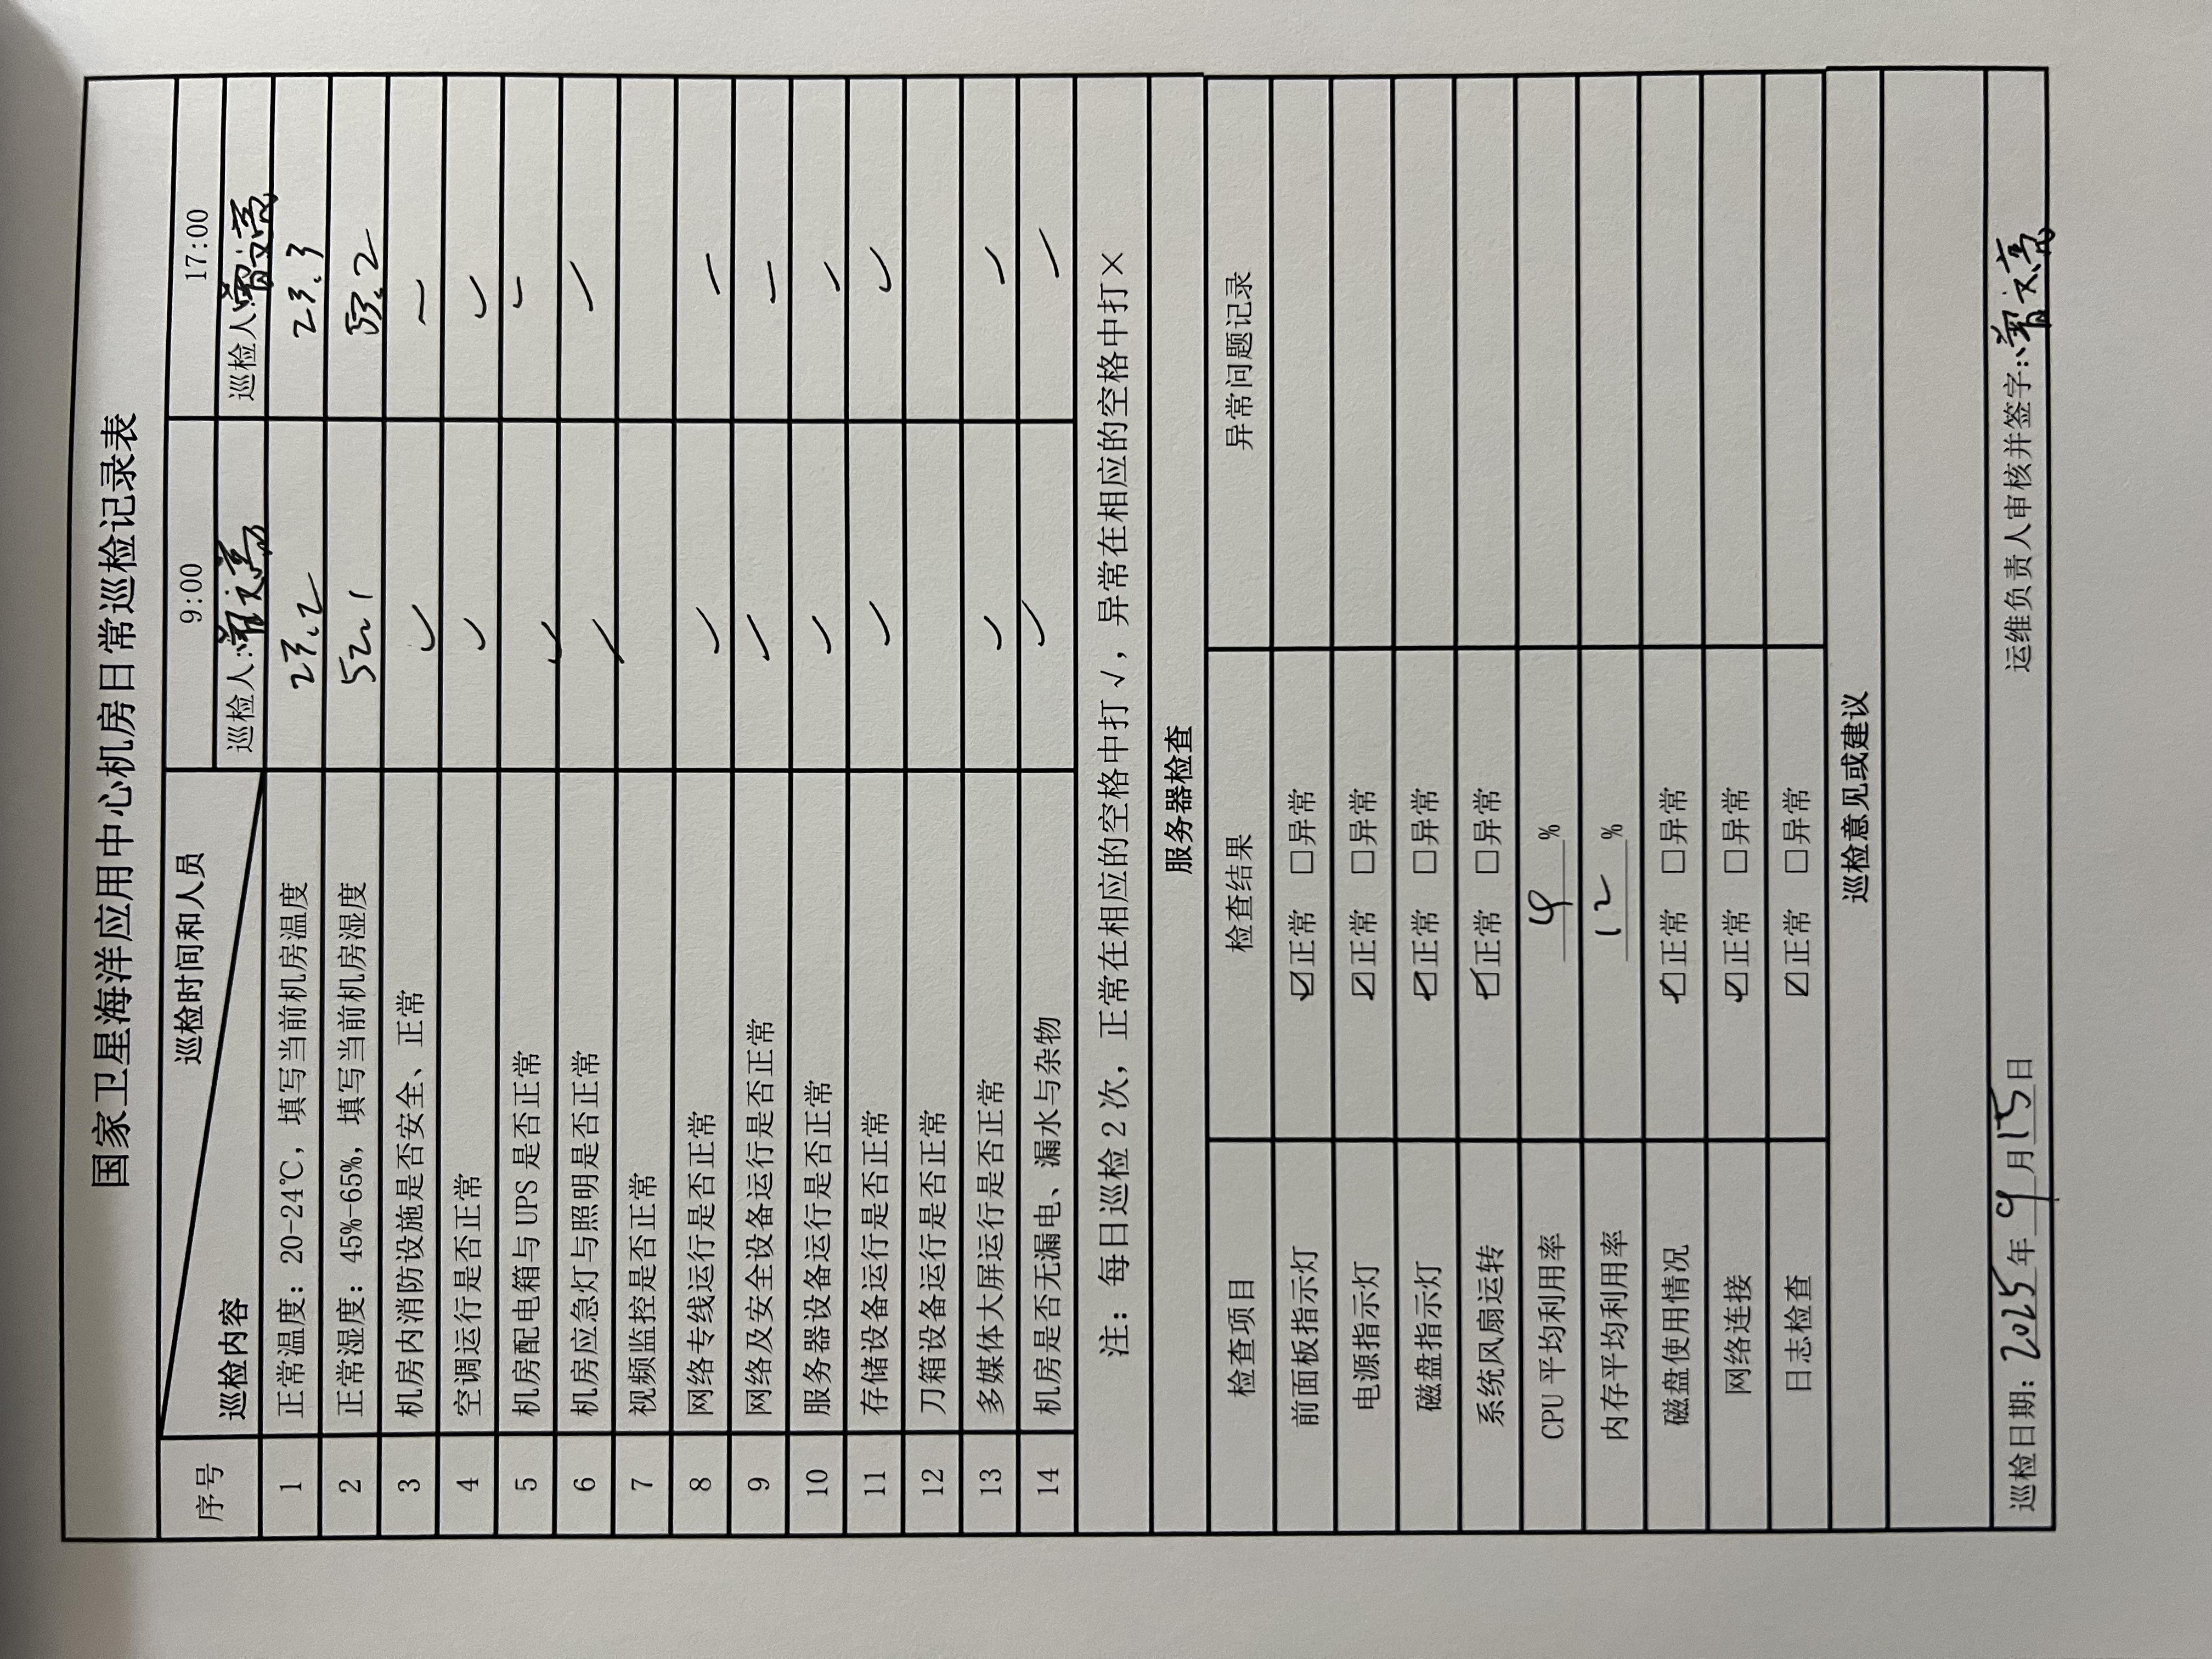 国家卫星海洋应用中心机房日常巡检记录表
序号 巡检内容 巡检时间和人员 9:00 17:00
巡检人:曾文亮 巡检人:曾文亮
1 正常温度：20-24℃，填写当前机房温度 23.2 23.3
2 正常湿度：45%-65%，填写当前机房湿度 52.1 53.2
3 机房内消防设施是否安全、正常 ✓ ✓
4 空调运行是否正常 ✓ ✓
5 机房配电箱与 UPS 是否正常 ✓ ✓
6 机房应急灯与照明是否正常 ✓ ✓
7 视频监控是否正常
8 网络专线运行是否正常 ✓ ✓
9 网络及安全设备运行是否正常 ✓ ✓
10 服务器设备运行是否正常 ✓ ✓
11 存储设备运行是否正常 ✓ ✓
12 刀箱设备运行是否正常
13 多媒体大屏运行是否正常 ✓ ✓
14 机房是否无漏电、漏水与杂物 ✓ ✓
注：每日巡检 2 次，正常在相应的空格中打 √，异常在相应的空格中打×
服务器检查
检查项目 检查结果 异常问题记录
前面板指示灯 ☑正常 □异常
电源指示灯 ☑正常 □异常
磁盘指示灯 ☑正常 □异常
系统风扇运转 ☑正常 □异常
CPU 平均利用率 4 %
内存平均利用率 12 %
磁盘使用情况 ☑正常 □异常
网络连接 ☑正常 □异常
日志检查 ☑正常 □异常
巡检意见或建议
巡检日期：2025年9月15日 运维负责人审核并签字:曾文亮